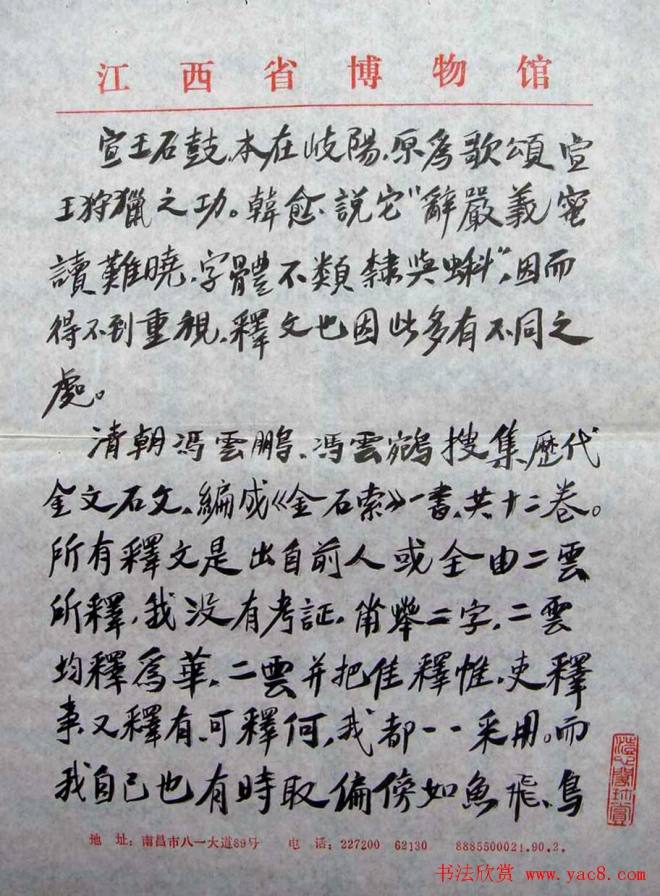 江西省博物馆
宣王石鼓,本在岐陽,原爲歌頌宣
王狩獵之功。韓愈說它“辭嚴義蜜
讀難曉,字體不類隸與蝌”,因而
得不到重視,釋文也因此多有不同之
處。
清朝馮雲鵬、馮雲鵷搜集歷代
金文石文,編成《金石索》一書,共十二卷。
所有釋文是出自前人或全由二雲
所釋,我没有考証,二字,二雲
均釋爲華,二雲并把隹釋惟,吏釋
事,又釋有,可釋何,我都一一采用。而
我自己也有時取偏傍如魚飛、鳥
地 址:南昌市八一大道89号 电 话:227200 62130 8885500021.90.2.
书法欣赏 www.yac8.com